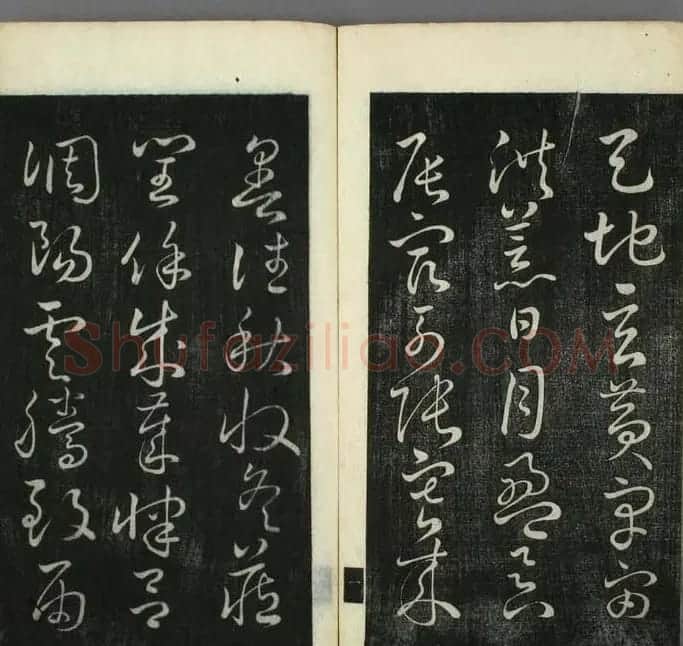 天地玄黃宇宙
洪荒日月盈昃
辰宿列張寒來
暑往秋收冬藏
閏餘成歲律呂
調陽雲騰致雨
一
Shufaziliao.COM